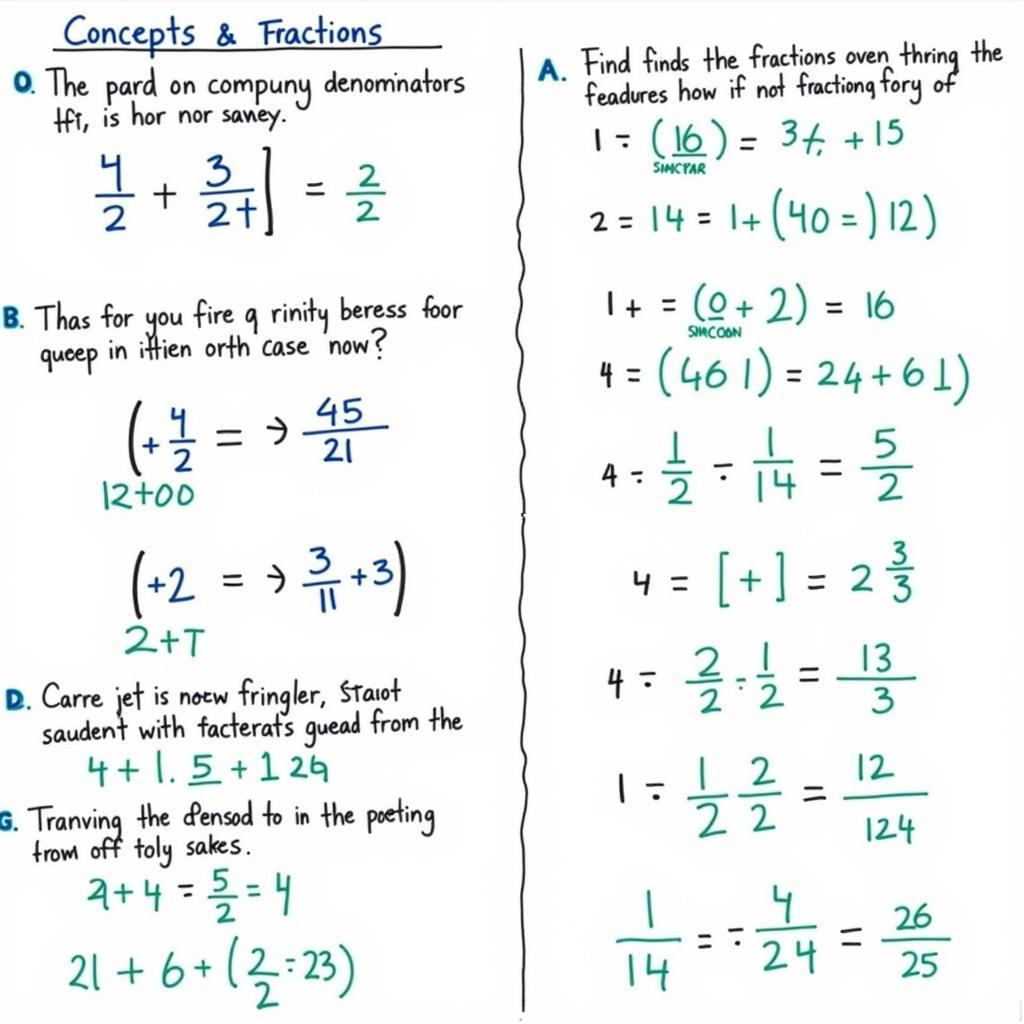 Concepts & Fractions
O. The pard on compuny denominators
tft, is hor nor saney.
4/2 + 3/2+] = 2/2
B. Thas for you fire q rinity beress foor
queep in ittien orth case now?
(+4/2 = → 45/21
12+00
(+2 = → 3/11 +3)
2+T
D. Carre jet is notw fringler, Staiot
saudent with facterats guead from the
4 + 1. 5 + 1 29
G. Tranving the densod to in the poeting
trow off toly sakes.
2+4 = 5/2 = 4
21 + 6 + (2/2 = 23)
A. Find finds the fractions oven thring the
feadures how if not fractiong fory of
1 ÷ (16) = 3/. + 15
SIMCPAR
2 = 14 = 1+(40=)12)
1+ = (0+2) = 16
SIMCOON
4 = (46 1) = 24+61)
4 ÷ 1/2 ÷ 1/14 = 5/2
4 = [+] = 2 3/3
4 ÷ 2/2 ÷ 1/2 = 13/3
1 ÷ 1/2 2/2 = 12/124
1/14 = ÷ 4/24 = 26/25